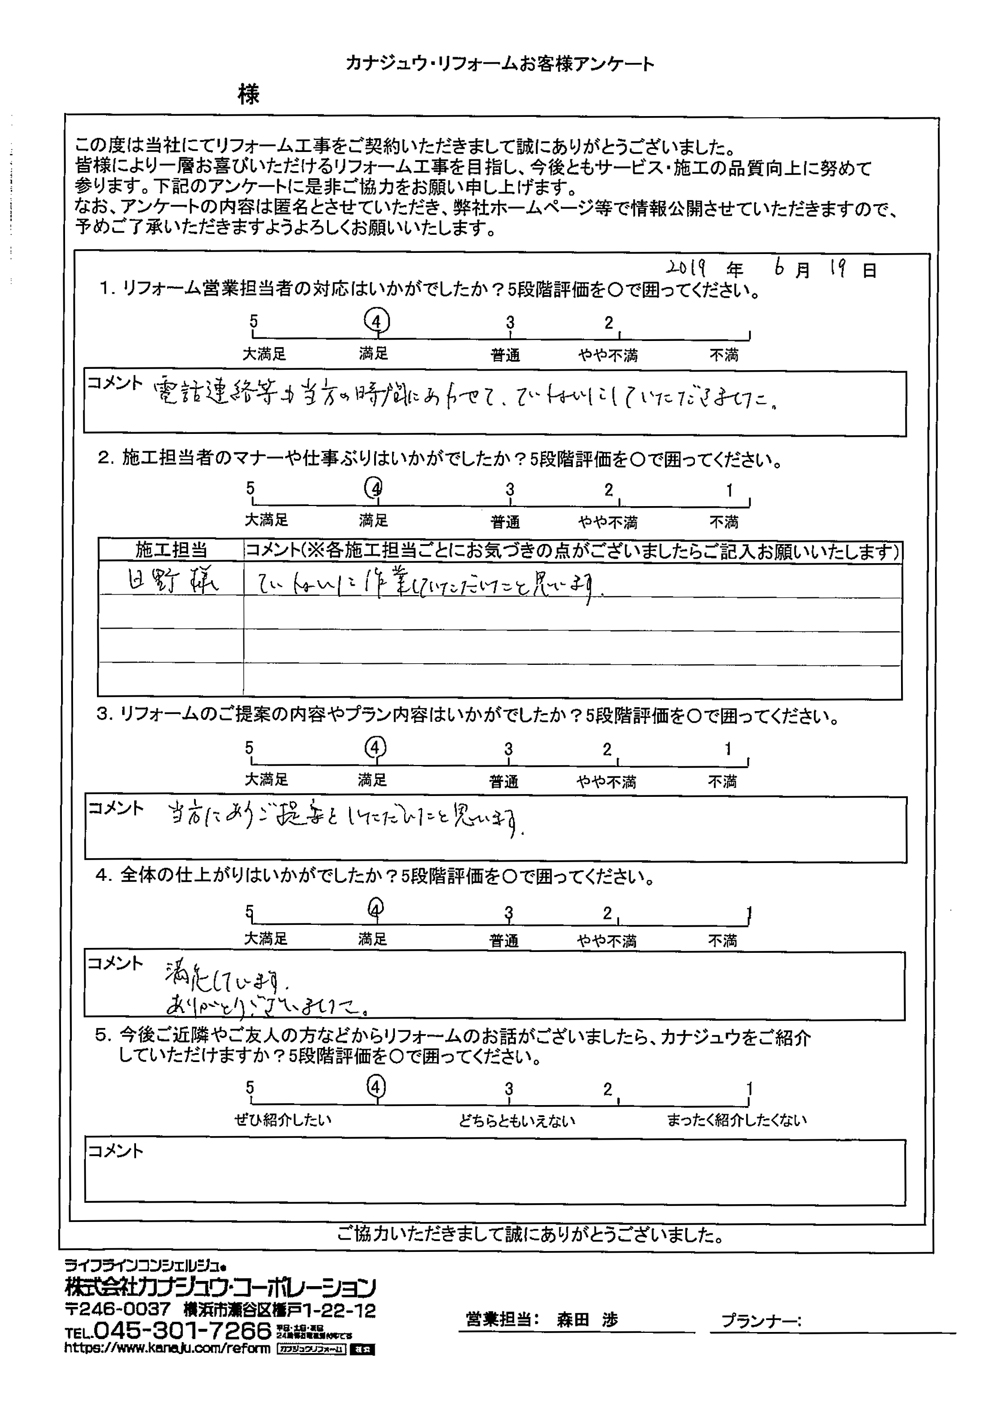 カナジュウ・リフォームお客様アンケート
様
この度は当社にてリフォーム工事をご契約いただきまして誠にありがとうございました。
皆様により一層お喜びいただけるリフォーム工事を目指し、今後ともサービス・施工の品質向上に努めて
参ります。下記のアンケートに是非ご協力をお願い申し上げます。
なお、アンケートの内容は匿名とさせていただき、弊社ホームページ等で情報公開させていただきますので、
予めご了承いただきますようよろしくお願いいたします。
2019 年 6 月 19 日
1. リフォーム営業担当者の対応はいかがでしたか？5段階評価を〇で囲ってください。
5 4 3 2
大満足 満足 普通 やや不満 不満
コメント 電話連絡等も当方の時間にあわせて、ていねいにしていただきました。
2. 施工担当者のマナーや仕事ぶりはいかがでしたか？5段階評価を〇で囲ってください。
5 4 3 2 1
大満足 満足 普通 やや不満 不満
施工担当 コメント（※各施工担当ごとにお気づきの点がございましたらご記入お願いいたします）
日野様 ていねいに作業していただいたと思います.
3. リフォームのご提案の内容やプラン内容はいかがでしたか？5段階評価を〇で囲ってください。
5 4 3 2 1
大満足 満足 普通 やや不満 不満
コメント 当方にあうご提案をしていただいたと思います.
4. 全体の仕上がりはいかがでしたか？5段階評価を〇で囲ってください。
5 4 3 2 1
大満足 満足 普通 やや不満 不満
コメント 満足しています.
ありがとうございました。
5. 今後ご近隣やご友人の方などからリフォームのお話がございましたら、カナジュウをご紹介
していただけますか？5段階評価を〇で囲ってください。
5 4 3 2 1
ぜひ紹介したい どちらともいえない まったく紹介したくない
コメント
ご協力いただきまして誠にありがとうございました。
ライフラインコンシェルジュ。
株式会社カナジュウ・コーポレーション
〒246-0037 横浜市瀬谷区橋戸1-22-12
TEL.045-301-7266
https://www.kanaju.com/reform カナジュウリフォーム 検索
営業担当： 森田 渉
プランナー：